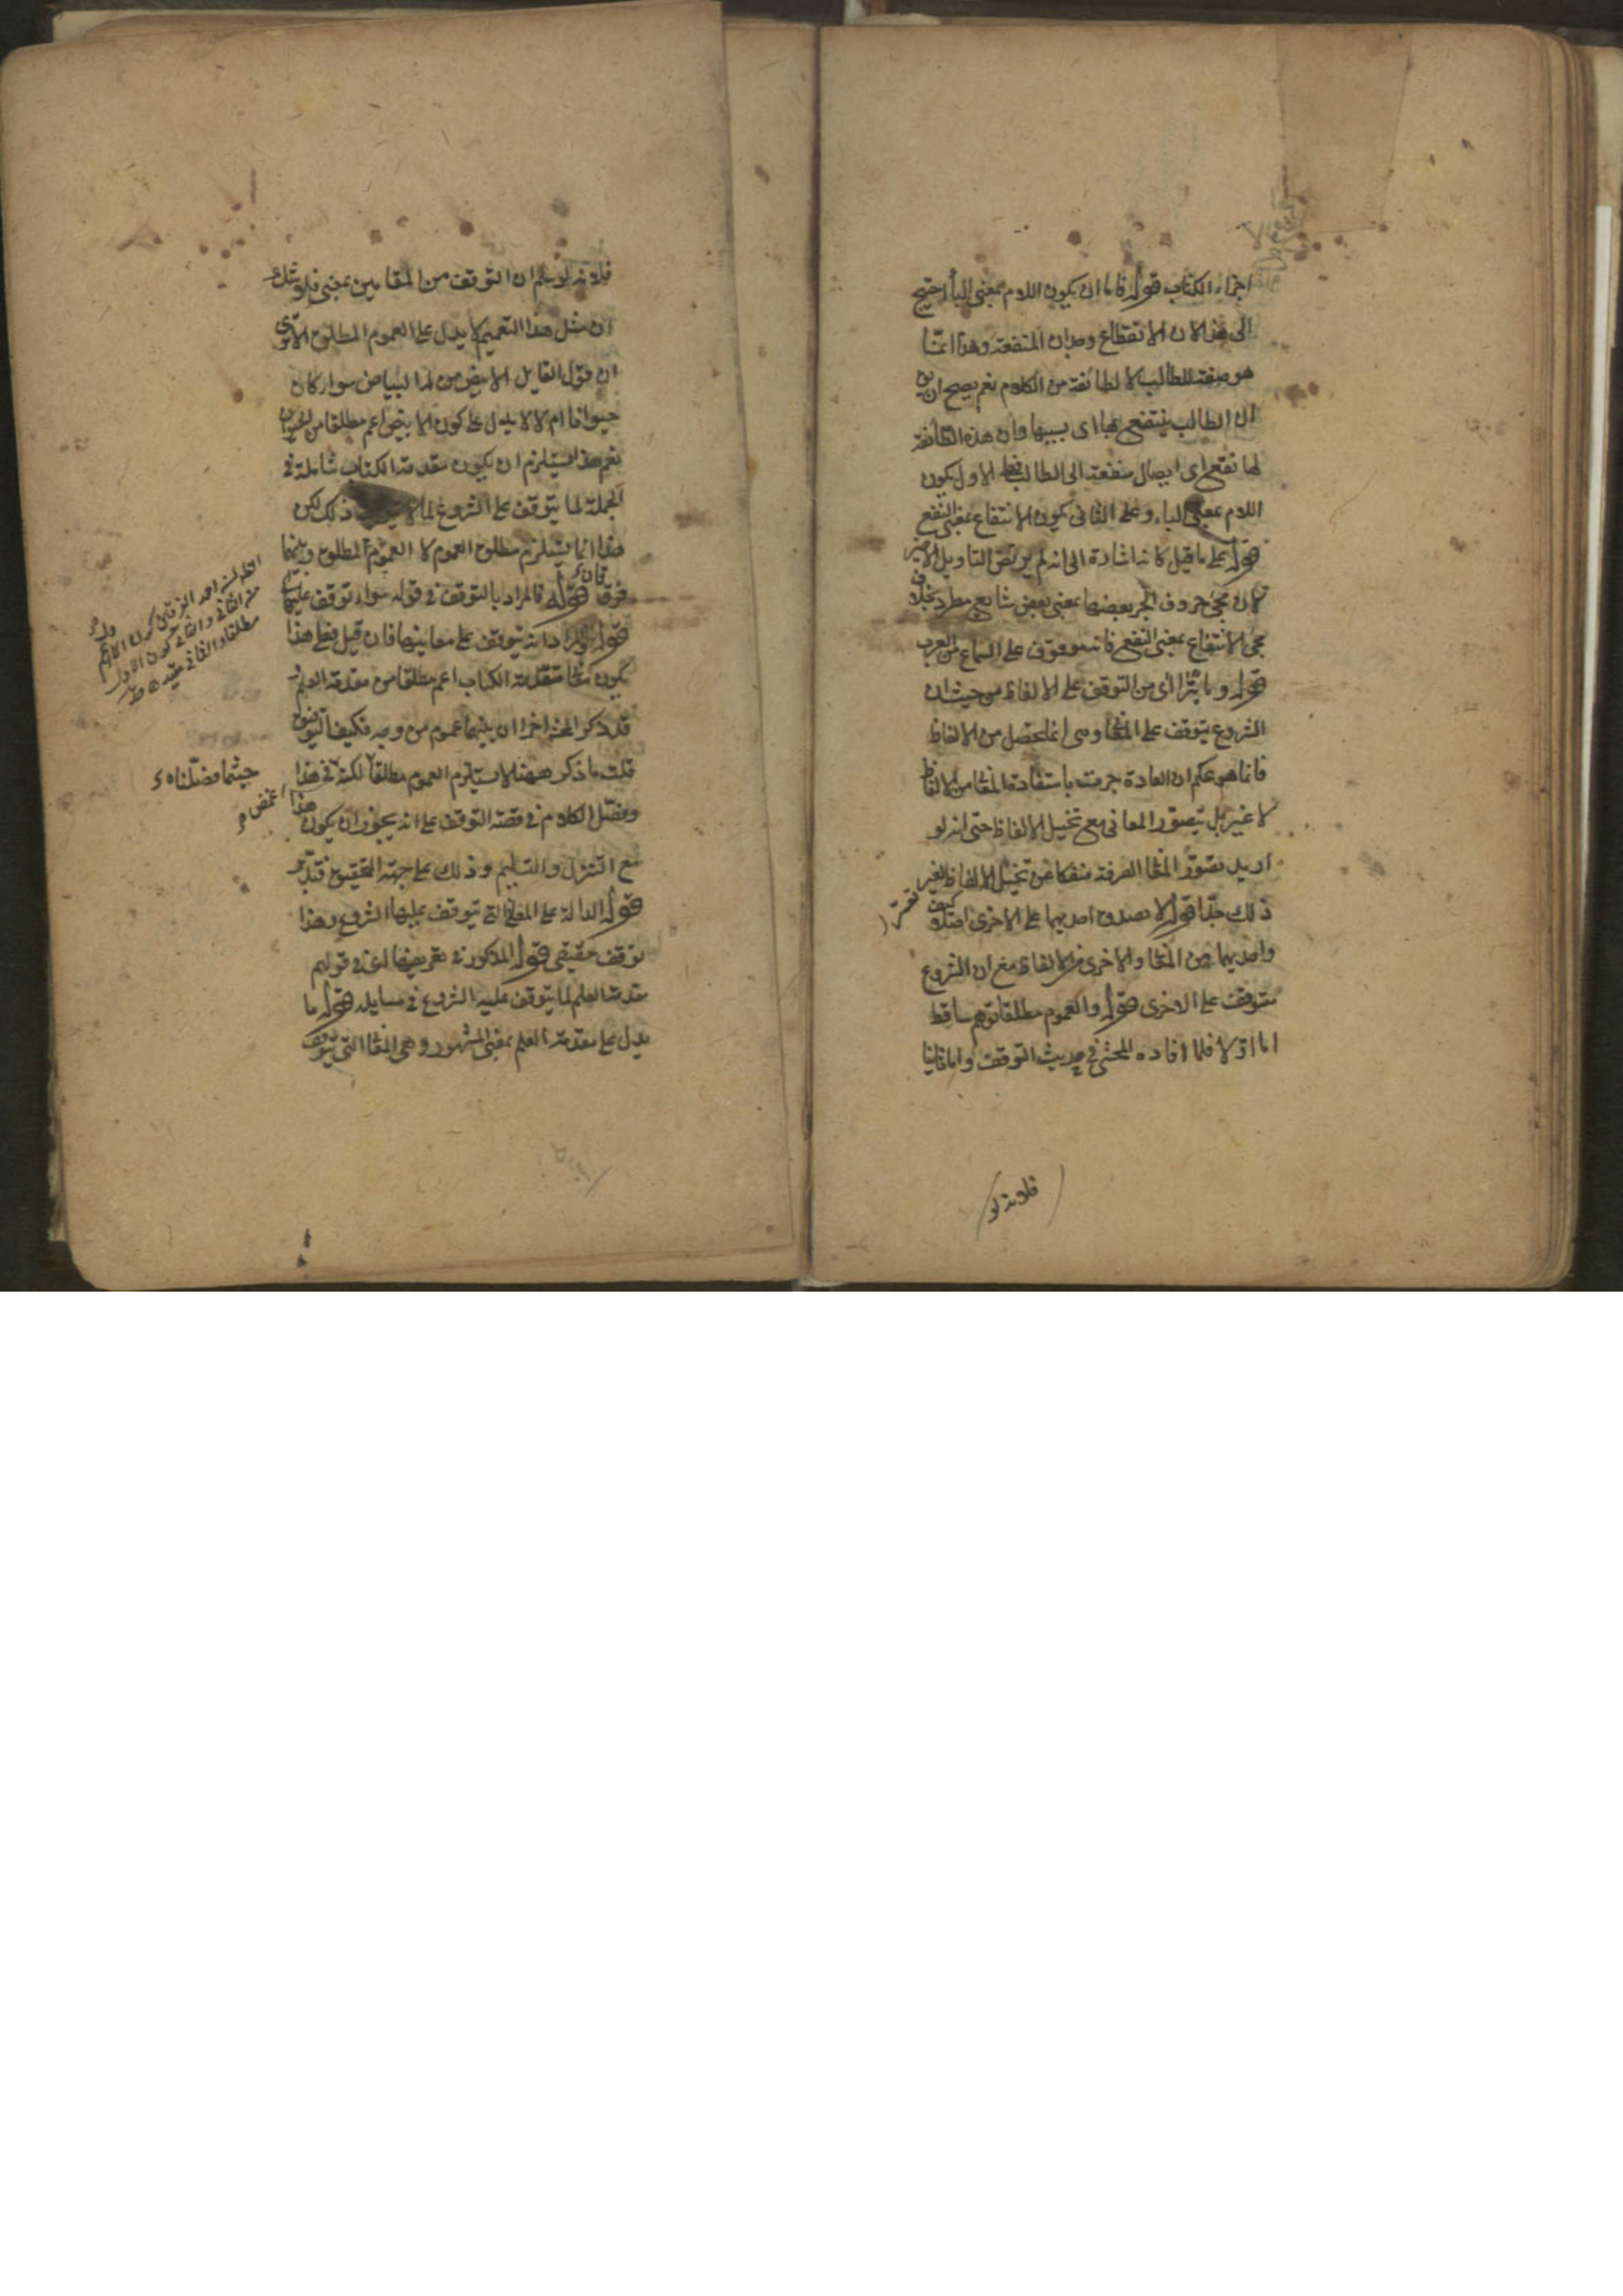 اجزاء الكتاب قوله فاما ان يكون اللام بمعنى الباء احتيج
الى هذا لان الانتفاع وجدان المنفعة وهذا انما
هو صفة للطالب لا لطائفة من الكلام نعم يصح ان
ان الطالب ينتفع بها اى بسببها وان هذه الطائفة
لها نفع اى ايصال منفعة الى الطالب فعلى الاول يكون
اللام بمعنى الباء وعلى الثانى يكون الانتفاع بمعنى النفع
قوله على ما قيل كانه اشارة الى انه لم يرتض التاويل الاخير
لان مجئ حروف الجر بعضها بمعنى بعض شايع مطرد بخلاف
مجئ الانتفاع بمعنى النفع فانه موقوف على السماع من العرب
قوله وما يترا اى من التوقف على الالفاظ من حيث ان
الشروع يتوقف على المعانى وهى انما تحصل من الالفاظ
فانما هو بحكم ان العادة جرت باستفادة المعانى من الالفاظ
لا غير بل تتصور المعانى مع تخيل الالفاظ حتى انه لو
اريد تصور المعانى الصرفة منفكا عن تخيل الالفاظ لغير
تعسر
ذلك جدا قوله لا تصدق احديهما على الاخرى اصلا كيف
واحديهما من المعانى والاخرى من الالفاظ مع ان الشروع
متوقف على الاخرى قوله والعموم مطلقا توهم ساقط
اما اولا فلما افاده المحشى فى حديث التوقف واما ثانيا
فلانه لو
فلانه لو سلم ان التوقف من المقامين بمعنى فلا شك
ان مثل هذا التعميم لا يدل على العموم المطلق الا ترى
ان قول القايل الابيض من له البياض سواء كان
حيوانا ام لا لا يدل على كون الابيض اعم مطلقا من الحيوان
نعم هذا يستلزم ان يكون مقدمة الكتاب شاملة فى
الجملة لما يتوقف على الشروع لما لا ذلك لكن
هذا انما يستلزم مطلق العموم لا العموم المطلق وبينهما
فرقان
قوله فالمراد بالتوقف فى قوله سواء توقف عليها
قوله والمراد انه يتوقف على معانيها فان قيل فعلى هذا
يكون مقدمة الكتاب اعم مطلقا من مقدمة العلم
قد ذكر المحشى اخرا ان بينهما عموم من وجه فكيف التوفيق
قلت ما ذكر ههنا لا يستلزم العموم مطلقا لكنه فى هذا
حيثما فصلناه
وفصل الكلام فى قصة التوقف على انه يجوز ان يكون هذا
اغمض
مع التنزل والتسليم وذلك على جهة التحقيق فتدبر
قوله الدالة على المعانى التى يتوقف عليها الشروع وهذا
توقف حقيقى قوله المذكور فى تعريفها اى فى قولهم
مقدمة العلم لما يتوقف عليه الشروع فى مسايله قوله ما
يدل على مقدمة العلم بمعنى المشهور وهى المعانى التى يتوقف